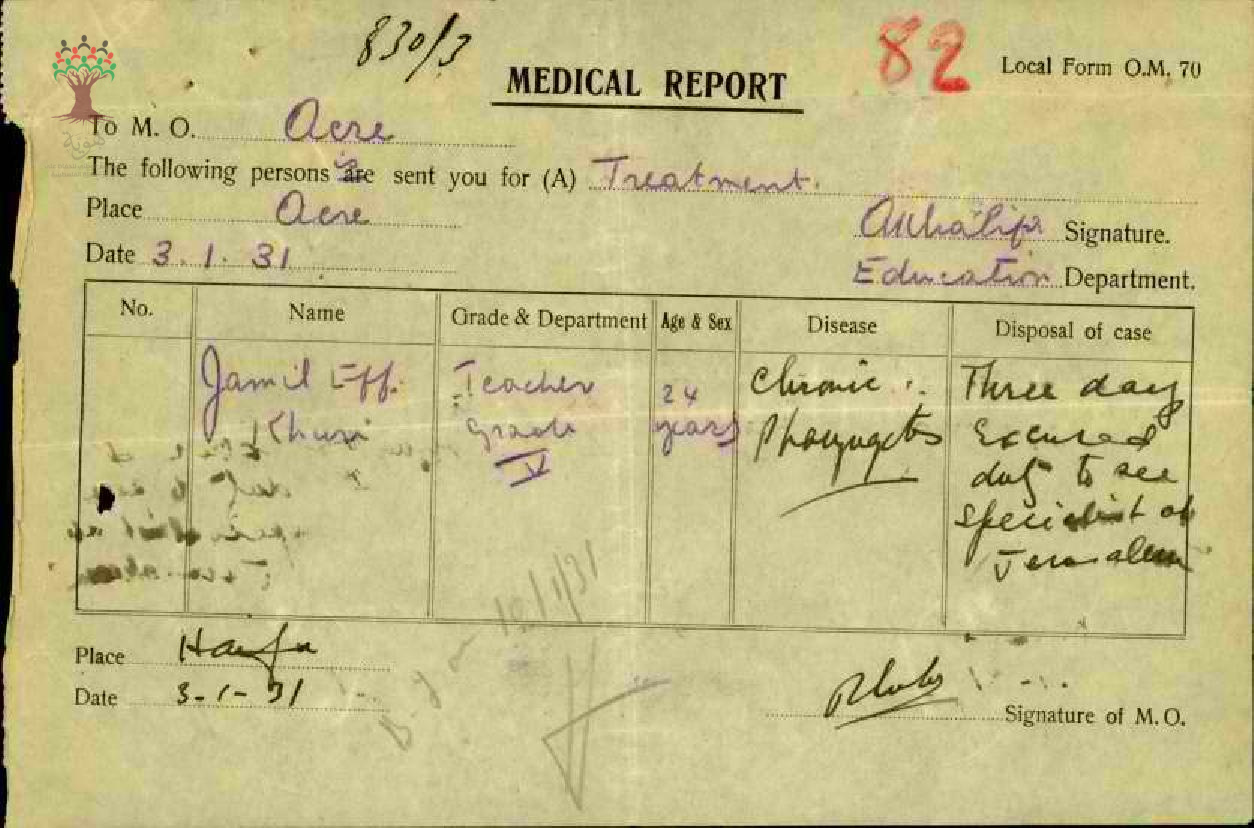 830/3
82
MEDICAL REPORT
Local Form O.M. 70
هوية
To M. O. Acre
The following persons are sent you for (A) Treatment.
Place Acre
Signature.
Date 3.1.31
Education Department.
No. Name Grade & Department Age & Sex Disease Disposal of case
Jamil Eff. Teacher 24 Chronic Three day
Khuri Grade years Pharyngitis Excused
V duty to see
specialist at
Jerusalem
10/1/31
Place Haifa
Date 3-1-31
Signature of M.O.